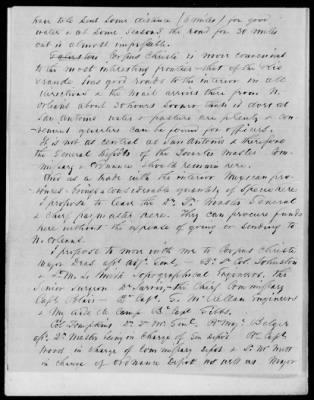 here to be sent some distance (6 miles) for good
water & at some seasons the road for 30 miles
out is almost impassable.
Corpus Christi is more convenient
to the most interesting frontier - that of the Rio
Grande has good roads to the interior in all
directions & the mail arrives there from N.
Orleans about 30 hours sooner than it does at
San Antonio water & pasture are plenty & con-
venient quarters can be found for officers.
It is not as central as San Antonio & therefore
the General Depots of the Quarter Master Com-
missary & Ordnance should remain here.
This is a trade with the interior Mexican pro-
vinces - brings a considerable quantity of Specie here
I propose to leave the Dy. Qr. Master General
& Chief paymaster here. They can procure funds
here without the expense of going or sending to
N. Orleans.
I propose to move with me to Corpus Christi
Major Deas asst. adjt. Genl - Bt. Lt. Col Johnston
& M. L. Smith Topographical Engineers, the
Senior Surgeon Dr Jarvis - the Chief Commissary
Capt Blair - Bt Capt. G. McClellan Engineers
& My aide de Camp Bt Capt Gibbs.
Col Tompkins Dy. Qr Mr Genl, Bt Majr Belger
asst. Qr Master being in charge of Gn Depot Bt Capt.
Wood in charge of Commissary depot & Lt McNutt
in charge of Ordnance Depot as well as Major